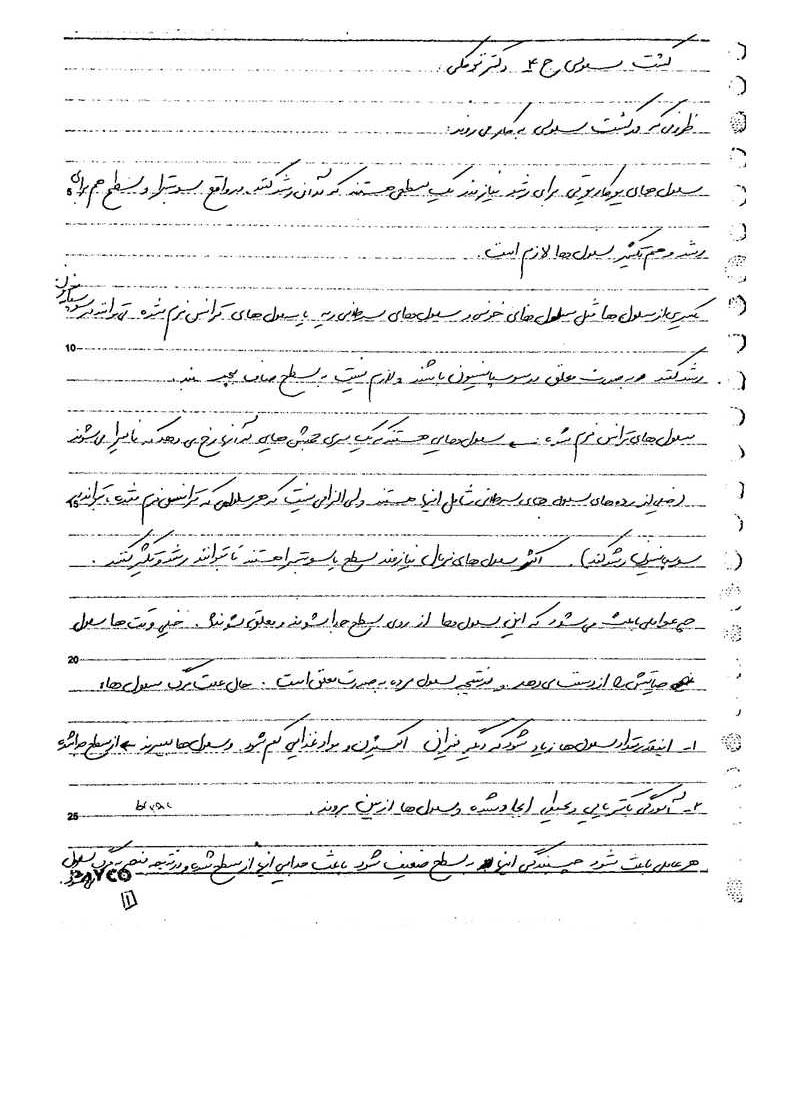 کشت سلولی ج ۴ دکتر توکلی
ظروفی که در کشت سلولی به کار می روند:
سلول های یوکاریوتی برای رشد نیازمند یک سطحی هستند که در آن رشد کنند. در واقع سوبسترا و سطح هم برای
5
رشد و هم تکثیر سلول ها لازم است.
یکسری از سلول ها مثل سلول های خونی و سلول های سرطانی ریه یا سلول های ترانس فرم شده می توانند در سوسپانسیون
10
رشد کنند و به صورت معلق در سوسپانسیون باشند و لازم نیست به سطح صاف بچسبند.
سلول های ترانس فرم شده ← سلول هایی هستند که یک سری جهش هایی در آنها رخ می دهد که نامیرا می شوند
(خیلی از رده های سلول های سرطانی شامل اینها هستند ولی الزامی نیست که هر سلولی که ترانس فرم شده، بتواند در
15
سوسپانسیون رشد کند). اکثر سلول های نرمال نیازمند سطح یا سوبسترا هستند تا بتوانند رشد و تکثیر کنند.
چه عواملی باعث می شود که این سلول ها از روی سطح جدا شوند و معلق شوند؟ خیلی وقت ها سلول
20
حیاتش را از دست می دهد و در نتیجه سلول مرده به صورت معلق است. حال علت مرگ سلول ها:
۱- اینقدر تعداد سلول ها زیاد شود که دیگر میزان اکسیژن و مواد غذایی کم شود و سلول ها میمیرند ← از سطح جدا شده
۲- آلودگی باکتریایی و محیطی ایجاد شده و سلول ها از بین بروند.
25
هر عاملی باعث شود چسبندگی اینها به سطح ضعیف شود باعث جدایی اینها از سطح شده و در نتیجه منجر به مرگ سلول
می شود.
۱